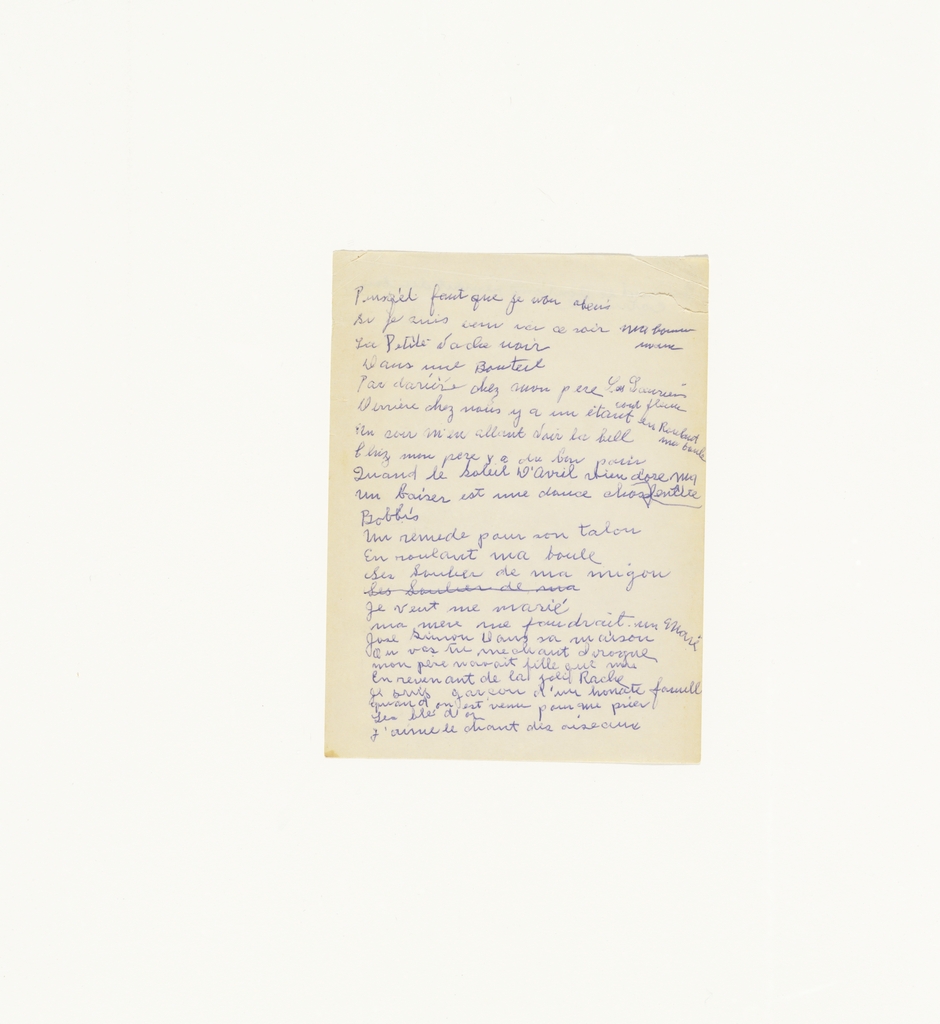 faut que je
Si je suis venu ce soir ma bonne
La Petite vache noir
Dans une Bouteil
Par dariére chez mon pere Les Lauriers
sont fleuri
Derrière chez nous y a un étant en Roulant
ma boule
Un soir m'en allant voir la bell
Chez mon pere y a du bon pain
Quand le soleil D'Avril vien dore ma
un baiser est une douce chos fentêtre
Un remede pour son talon
En roulant ma boule
Les Soulier de ma migon
Les Soulier de ma
Je veut me marié
ma mere me faudrait un Marié
José Simon Dans sa maison
Ou vas tu mechant ivrogne
mon pere navait fille que moi
En revenant de la joli Rochel
Je suis garçon d'un honate famill
quand on est venu pour me prier
Les blé d'or
J'aime le chant des oiseaux